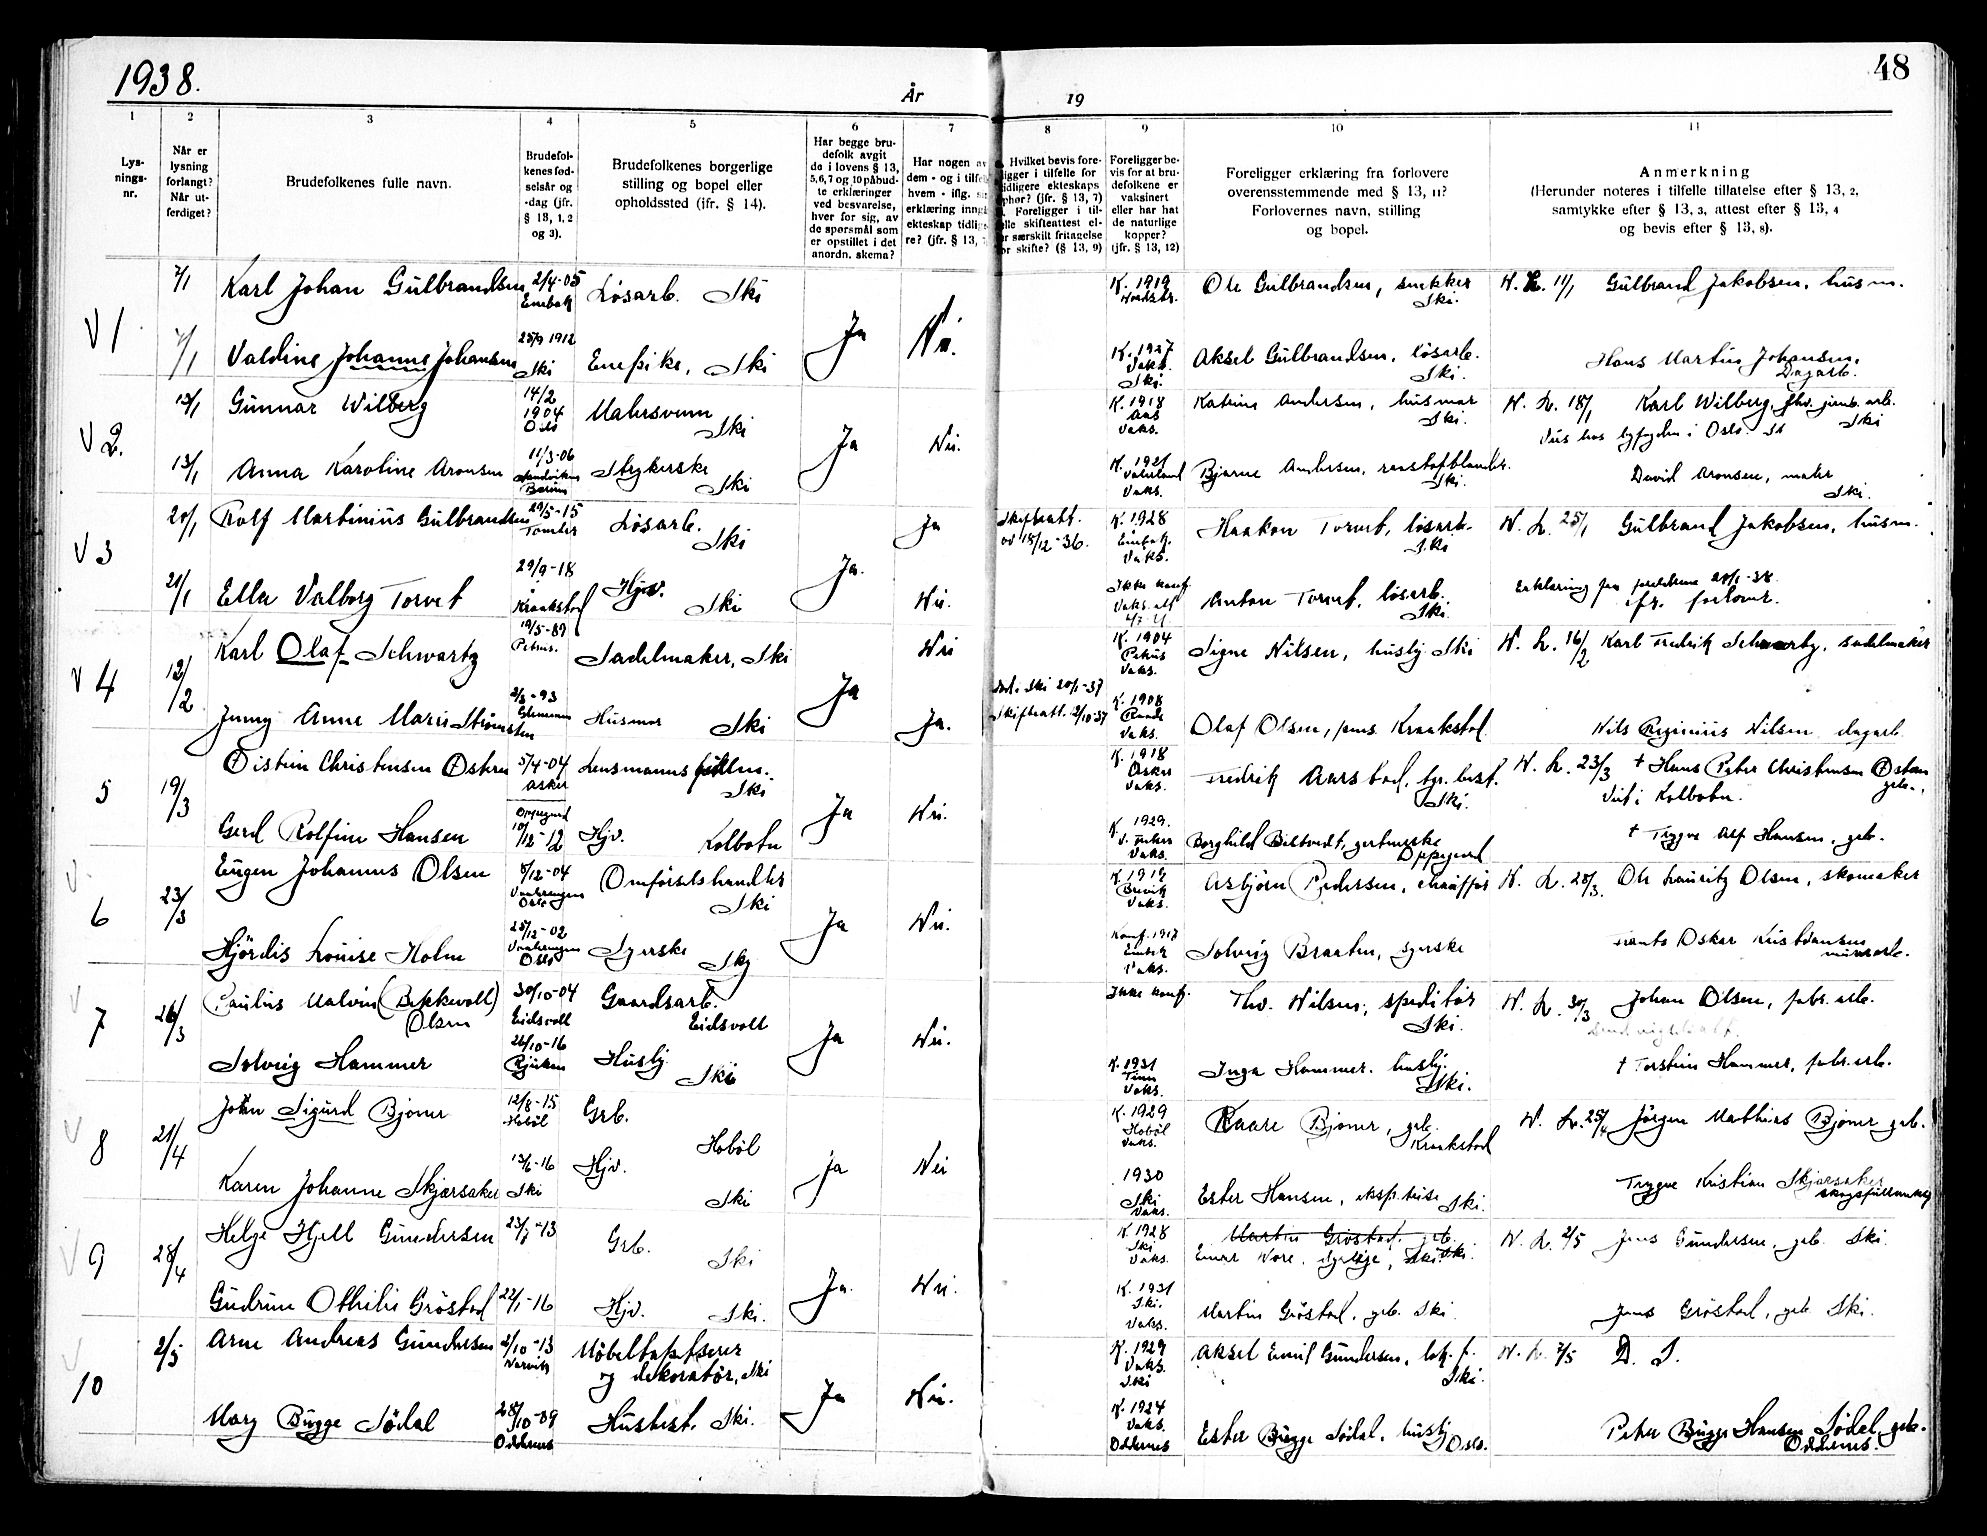 1938.
År
19
48
1
2
3
4
5
6
7
8
9
10
11
Lys-
nings-
nr.
Når er
lysning
forlangt?
Når ut-
ferdiget?
Brudefolkenes fulle navn.
Brudefol-
kenes fød-
selsår og
-dag (jfr.
§ 18, 1, 2
og 3).
Brudefolkenes borgerlige
stilling og bopel eller
opholdssted (jfr. § 14).
Har begge bru-
defolk avgit
de i lovens § 13,
5, 6, 7 og 10 påbud-
te erklæringer
ved besvarelse,
hver for sig, av
de spørsmål som
er opstillet i det
anordn. skema?
Har nogen av
dem - og i tilfelle
hvem - iflg.
erklæring inng
ekteskap tidlig
re? (jfr. § 13,
Hvilket bevis fore-
ligger i tilfelle for
tidligere ekteskaps
ophør? (jfr. § 13, 7)
Foreligger i til-
felle skifteattest el-
særskilt fritagelse
for skifte? (§ 13, 9)
Foreligger be-
vis for at bru-
defolkene er
vaksinert
eller har hat
de naturlige
kopper?
(jfr. § 13, 12)
Foreligger erklæring fra forlovere
overensstemmende med § 13, 11?
Forlovernes navn, stilling
og bopel.
Anmerkning
(Herunder noteres i tilfelle tillatelse efter § 13, 2,
samtykke efter § 13, 3, attest efter § 13, 4
og bevis efter § 13, 8).
V 1
7/1 Karl Johan Gulbrandsen 2/4-05 Løsarb. Ski K. 1919 Ole Gulbrandsen, snekker Ski. 11/1 Gulbrand Jakobsen, husm.
Enebak
Ja Nei.
7/1 Valdine Johanne Johansen 25/9 1912 Ski Enepike, Ski K. 1927 Vaks. Ski. Aksel Gulbrandsen, løsarb. Ski. Hans Martin Johansen, Dagarb.
V 2.
13/1 Gunnar Wilberg 14/2 1904 Oslo Malersvenn Ski K. 1918 Aas Vaks. Katrine Andersen, husmor Ski. 18/1 Karl Wilberg, jernb. arb. Ski
Viet hos byfogden i Oslo.
Ja Nei.
13/1 Anna Karoline Aronsen 11/3-06 Sandviken Bærum Strykerske Ski K. 1921 Vaterland Vaks. Bjarne Andersen, Ski. David Aronsen, maler Ski.
V 3
20/1 Rolf Martinius Gulbrandsen 29/5-15 Tomter Løsarb. Ski Ja Skifteatt. av 18/12-36. K. 1928 Enebak. Vaks. Haakon Torvet, løsarb. Ski 25/1 Gulbrand Jakobsen, husm.
Ja.
21/1 Ella Valborg Torvet 29/9-18 Kraakstad Hjv. Ski Nei. Ikke konf. Anton Torvet, løsarb. Ski. Erklæring fra foreldrene 20/1-38.
jfr. forlover.
V 4
12/2 Karl Olaf Schwartz 19/5-89 Petrus. Sadelmaker, Ski Nei K. 1904 Petrus Vaks. Signe Nilsen, husbj. Ski 16/2 Karl Fredrik Schwartz, sadelmaker
Ja
Jenny Anne Marie Strømsten 2/3-93 Husmor Ski Ja. Ski 20/1-37 Skifteatt. 2/10-37 K. 1908 Vaks. Olaf Olsen, pens. Kraakstad Nils Reginius Nilsen dagarb.
5
19/3 Øistein Christensen Østern 5/4-04 Asker Lensmannsfullm. Ski K. 1918 Asker Vaks. Fredrik Aarstad, Ski. 23/3 † Hans Peter Christensen Østern gb.
Viet i Kolbotn.
Ja Nei.
Gerd Rolfine Hansen Oppegård 10/12-12 Hjv. Kolbotn K. 1929. Vaks. Borghild Biltvedt, Oppegård † Trygve Alf Hansen, gb.
6
23/3 Eugen Johannes Olsen 5/12-04 Vaalerengen Oslo Omførselshandler Ski K. 1919 Brevik Vaks. Asbjørn Pedersen, chauffør 28/3. Ole Lauritz Olsen, skomaker
Ja Nei.
Hjørdis Louise Holm 25/12-02 Vaalerengen Oslo Syerske Ski Konf. 1917 Vaks. Solveig Braaten, syerske Frants Oskar Kristiansen murarb.
7
26/3 Paulus Malvin (Bekkevoll) Olsen 30/10-04 Eidsvoll Gaardsarb. Eidsvoll Ikke konf. Thv. Nilsen, speditør Ski. 30/3 Johan Olsen, fabr. arb.
Ja Nei.
Solveig Hammer 26/10-16 Rjukan Husbj. Ski K. 1931 Tinn Vaks. Inga Hammer. husbj. Ski. † Torstein Hammer, fabr. arb.
8
21/4 John Sigurd Bjoner 12/8-15 Hobøl Grb. Hobøl K. 1929 Hobøl Vaks. Kaare Bjoner, grb. Kraakstad 25/4 Jørgen Mathias Bjoner gb.
Ja Nei
Karen Johanne Skjærsaker 13/6-16 Ski Hjv. Ski 1930 Ski Vaks. Ester Hansen, eksp. trise Ski. Trygve Kristian Skjærsaker skogsfullmektig
9
28/4 Helge Kjell Gundersen 23/7-13 Grb. Ski K. 1928 Ski Vaks. Martin Grøstad, grb. 2/5 Jens Gundersen, grb. Ski.
Einar Nore. Ski.
Ja. Nei.
Gudrun Othilie Grøstad 22/1-16 Hjv. Ski. K. 1931 Ski. Vaks. Martin Grøstad, grb. Ski Jens Grøstad, grb. Ski.
10
2/5 Arne Andreas Gundersen 2/10-13 Narvik Møbeltapetserer og dekoratør, Ski K. 1929 Vaks. Ski Aksel Emil Gundersen, lok. f. Ski. 7/5 D. S.
Ja Nei.
Mary Bugge Sødal 28/10-09 Oddernes Husbest. Ski. K. 1924 Vaks. Oddernes Ester Bugge Sødal, husbj. Oslo. Peter Bugge Hansen Sødal, grb. Oddernes.